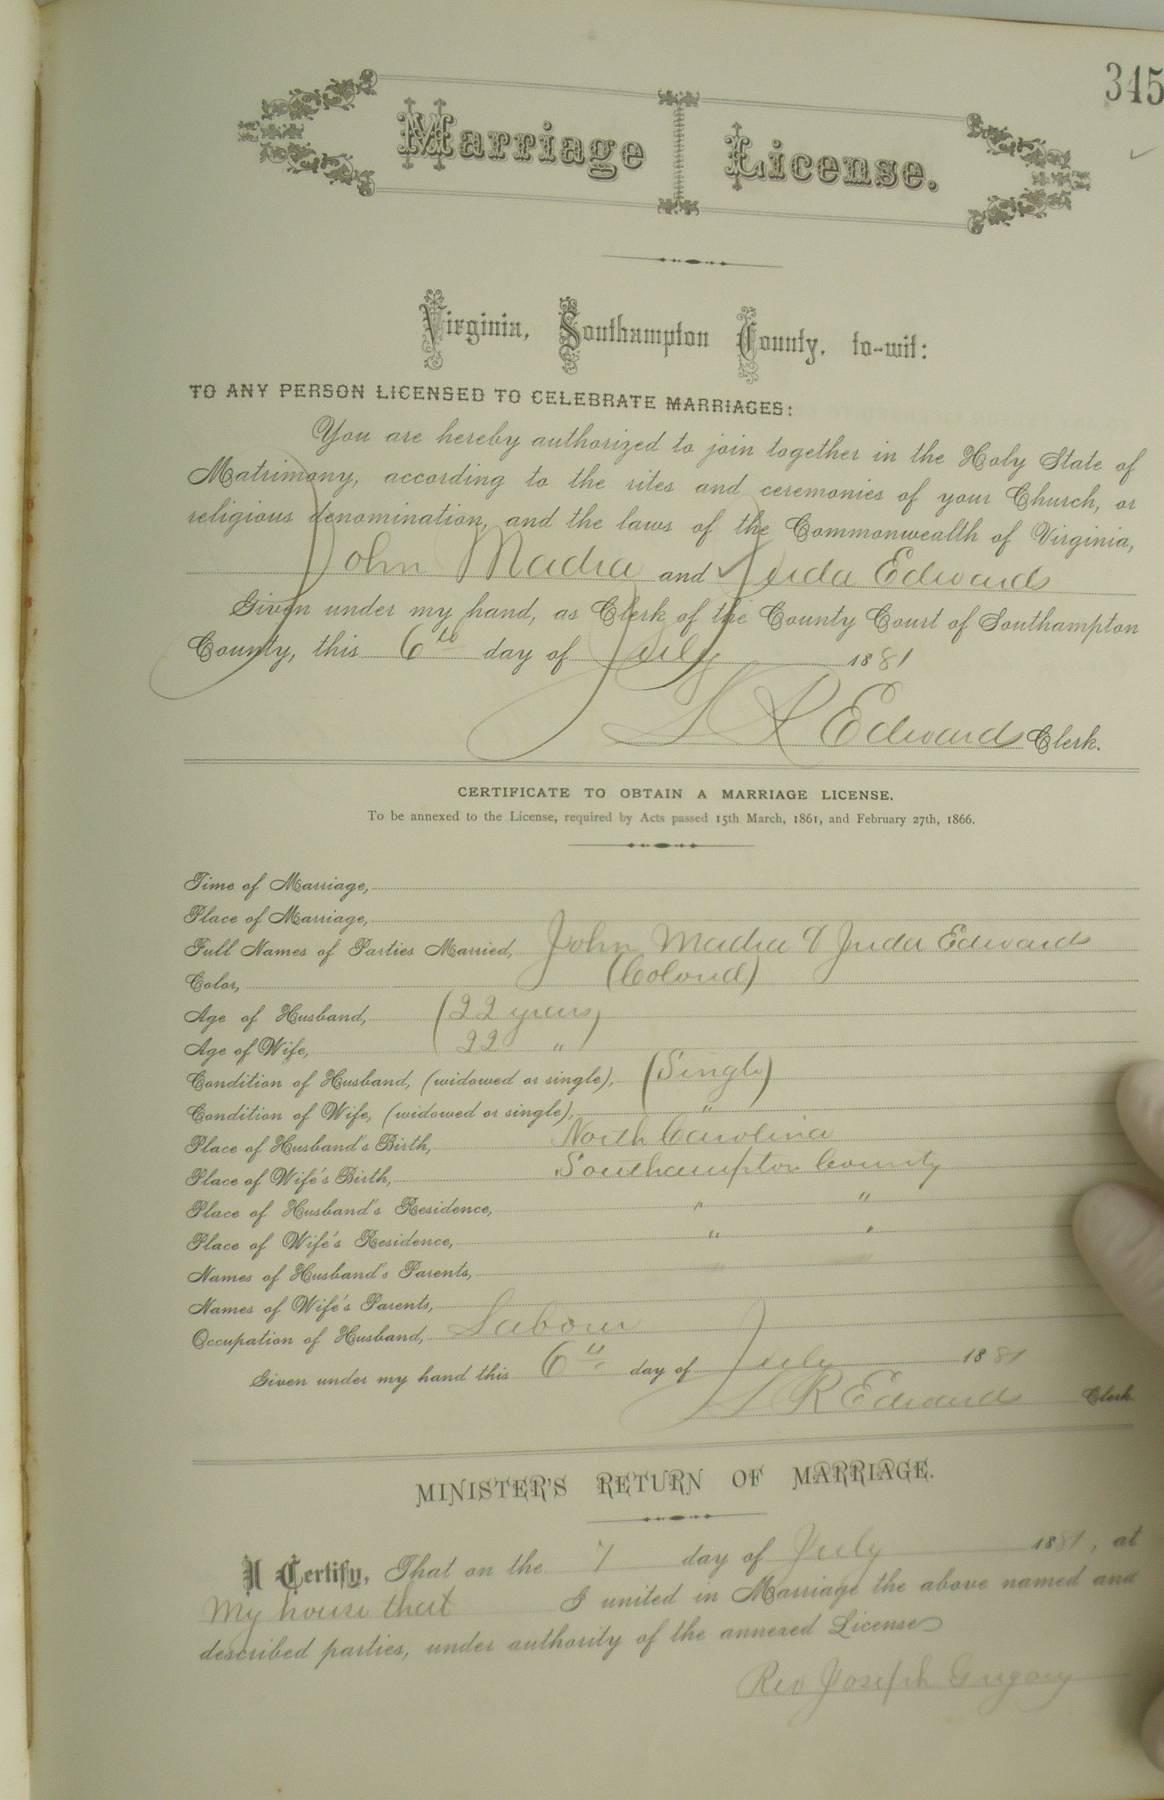 345
Marriage License.
Virginia, Southampton County, to-wit:
TO ANY PERSON LICENSED TO CELEBRATE MARRIAGES:
You are hereby authorized to join together in the Holy State of
Matrimony, according to the rites and ceremonies of your Church, or
religious denomination, and the laws of the Commonwealth of Virginia,
John Madra and Juda Edwards
Given under my hand, as Clerk of the County Court of Southampton
County, this 6th day of July 1881
L R Edwards Clerk.
CERTIFICATE TO OBTAIN A MARRIAGE LICENSE.
To be annexed to the License, required by Acts passed 15th March, 1861, and February 27th, 1866.
Time of Marriage,
Place of Marriage,
Full Names of Parties Married, John Madra & Juda Edwards
Color, (Colored)
Age of Husband, (22 years)
Age of Wife, 22 "
Condition of Husband, (widowed or single), (Single)
Condition of Wife, (widowed or single), "
Place of Husband's Birth, North Carolina
Place of Wife's Birth, Southampton County
Place of Husband's Residence, " "
Place of Wife's Residence, " "
Names of Husband's Parents,
Names of Wife's Parents,
Occupation of Husband, Labour
Given under my hand this 6th day of July 1881
L R Edwards Clerk
MINISTER'S RETURN OF MARRIAGE.
I Certify, That on the 7 day of July 1881, at
My house that I united in Marriage the above named and
described parties, under authority of the annexed License
Rev Joseph Gregory